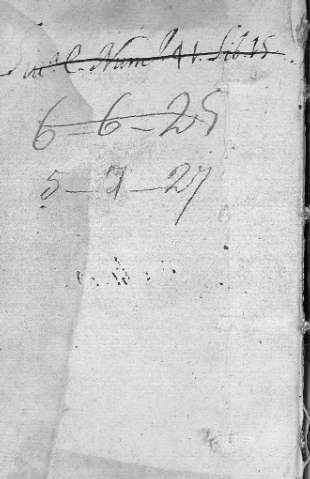 C. Num. 41. Lib. 15
6-6-25
5-7-27